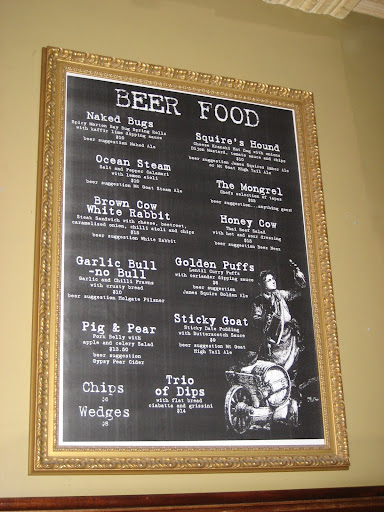 BEER FOOD
Naked Bugs
Spicy Morton Bay Bug Spring Rolls
with kaffir lime dipping sauce
$10
beer suggestion Naked Ale
Ocean Steam
Salt and Pepper Calamari
with lemon aioli
$10
beer suggestion Mt Goat Steam Ale
Brown Cow
White Rabbit
Steak Sandwich with cheese, beetroot,
caramelised onion, chilli aioli and chips
$15
beer suggestion White Rabbit
Garlic Bull
-no Bull
Garlic and Chilli Prawns
with crusty bread
$10
beer suggestion Holgate Pilsner
Pig & Pear
Pork Belly with
apple and celery Salad
beer suggestion
Gypsy Pear Cider
Chips
$6
Wedges
$8
Squire's Hound
Cheese Kranski Hot Dog with onions
Dijon Mustard, tomato sauce and chips
beer suggestion James Squires Amber Ale
or Mt Goat High Tail Ale
The Mongrel
Chef's selection of tapas
beer suggestion...anything goes!
Honey Cow
Thai Beef Salad
with hot and sour dressing
$15
beer suggestion Beez Neez
Golden Puffs
Lentil Curry Puffs
with coriander dipping sauce
beer suggestion
James Squire Golden Ale
Sticky Goat
Sticky Date Pudding
with Butterscotch Sauce
beer suggestion Mt Goat
High Tail Ale
Trio
of Dips
with flat bread
ciabatta and grissini
$14